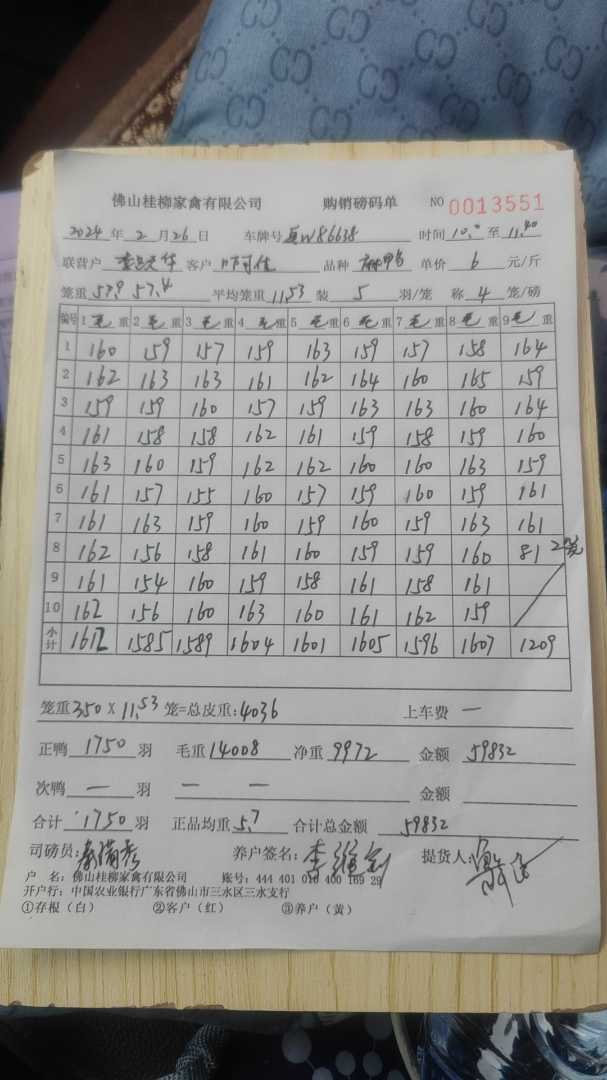 佛山桂柳家禽有限公司 购销磅码单 NO 0013551
2024 年 2 月 26 日 车牌号 W86638 时间 10.0 至 11.40
联营户 客户 品种 麻鸭 单价 6 元/斤
笼重 57.9 57.4 平均笼重 11.53 装 5 羽/笼 称 4 笼/磅
编号 1 毛 重 2 毛 重 3 毛 重 4 毛 重 5 毛 重 6 毛 重 7 毛 重 8 毛 重 9 毛 重
1 160 159 157 159 163 159 157 158 164
2 162 163 163 161 162 164 160 165 159
3 159 159 160 157 159 163 163 160 164
4 161 158 158 162 161 159 158 159 160
5 163 160 159 162 162 160 160 163 159
6 161 157 155 160 157 159 160 159 161
7 161 163 159 160 159 160 159 163 161
8 162 156 158 161 160 159 159 160 81 2笼
9 161 154 160 159 158 161 158 161
10 162 156 160 163 160 161 162 159
小计 1612 1585 1589 1604 1601 1605 1596 1607 1209
笼重 350 X 11.53 笼=总皮重: 4036 上车费 一
正鸭 1750 羽 毛重 14008 净重 9972 金额 59832
次鸭 一 羽 一 一 金额
合计 1750 羽 正品均重 5.7 合计总金额 59832
司磅员: 养户签名: 李 提货人:
户 名: 佛山桂柳家禽有限公司 账号: 444 401 010 400 169 29
开户行: 中国农业银行广东省佛山市三水区三水支行
①存根（白） ②客户（红） ③养户（黄）